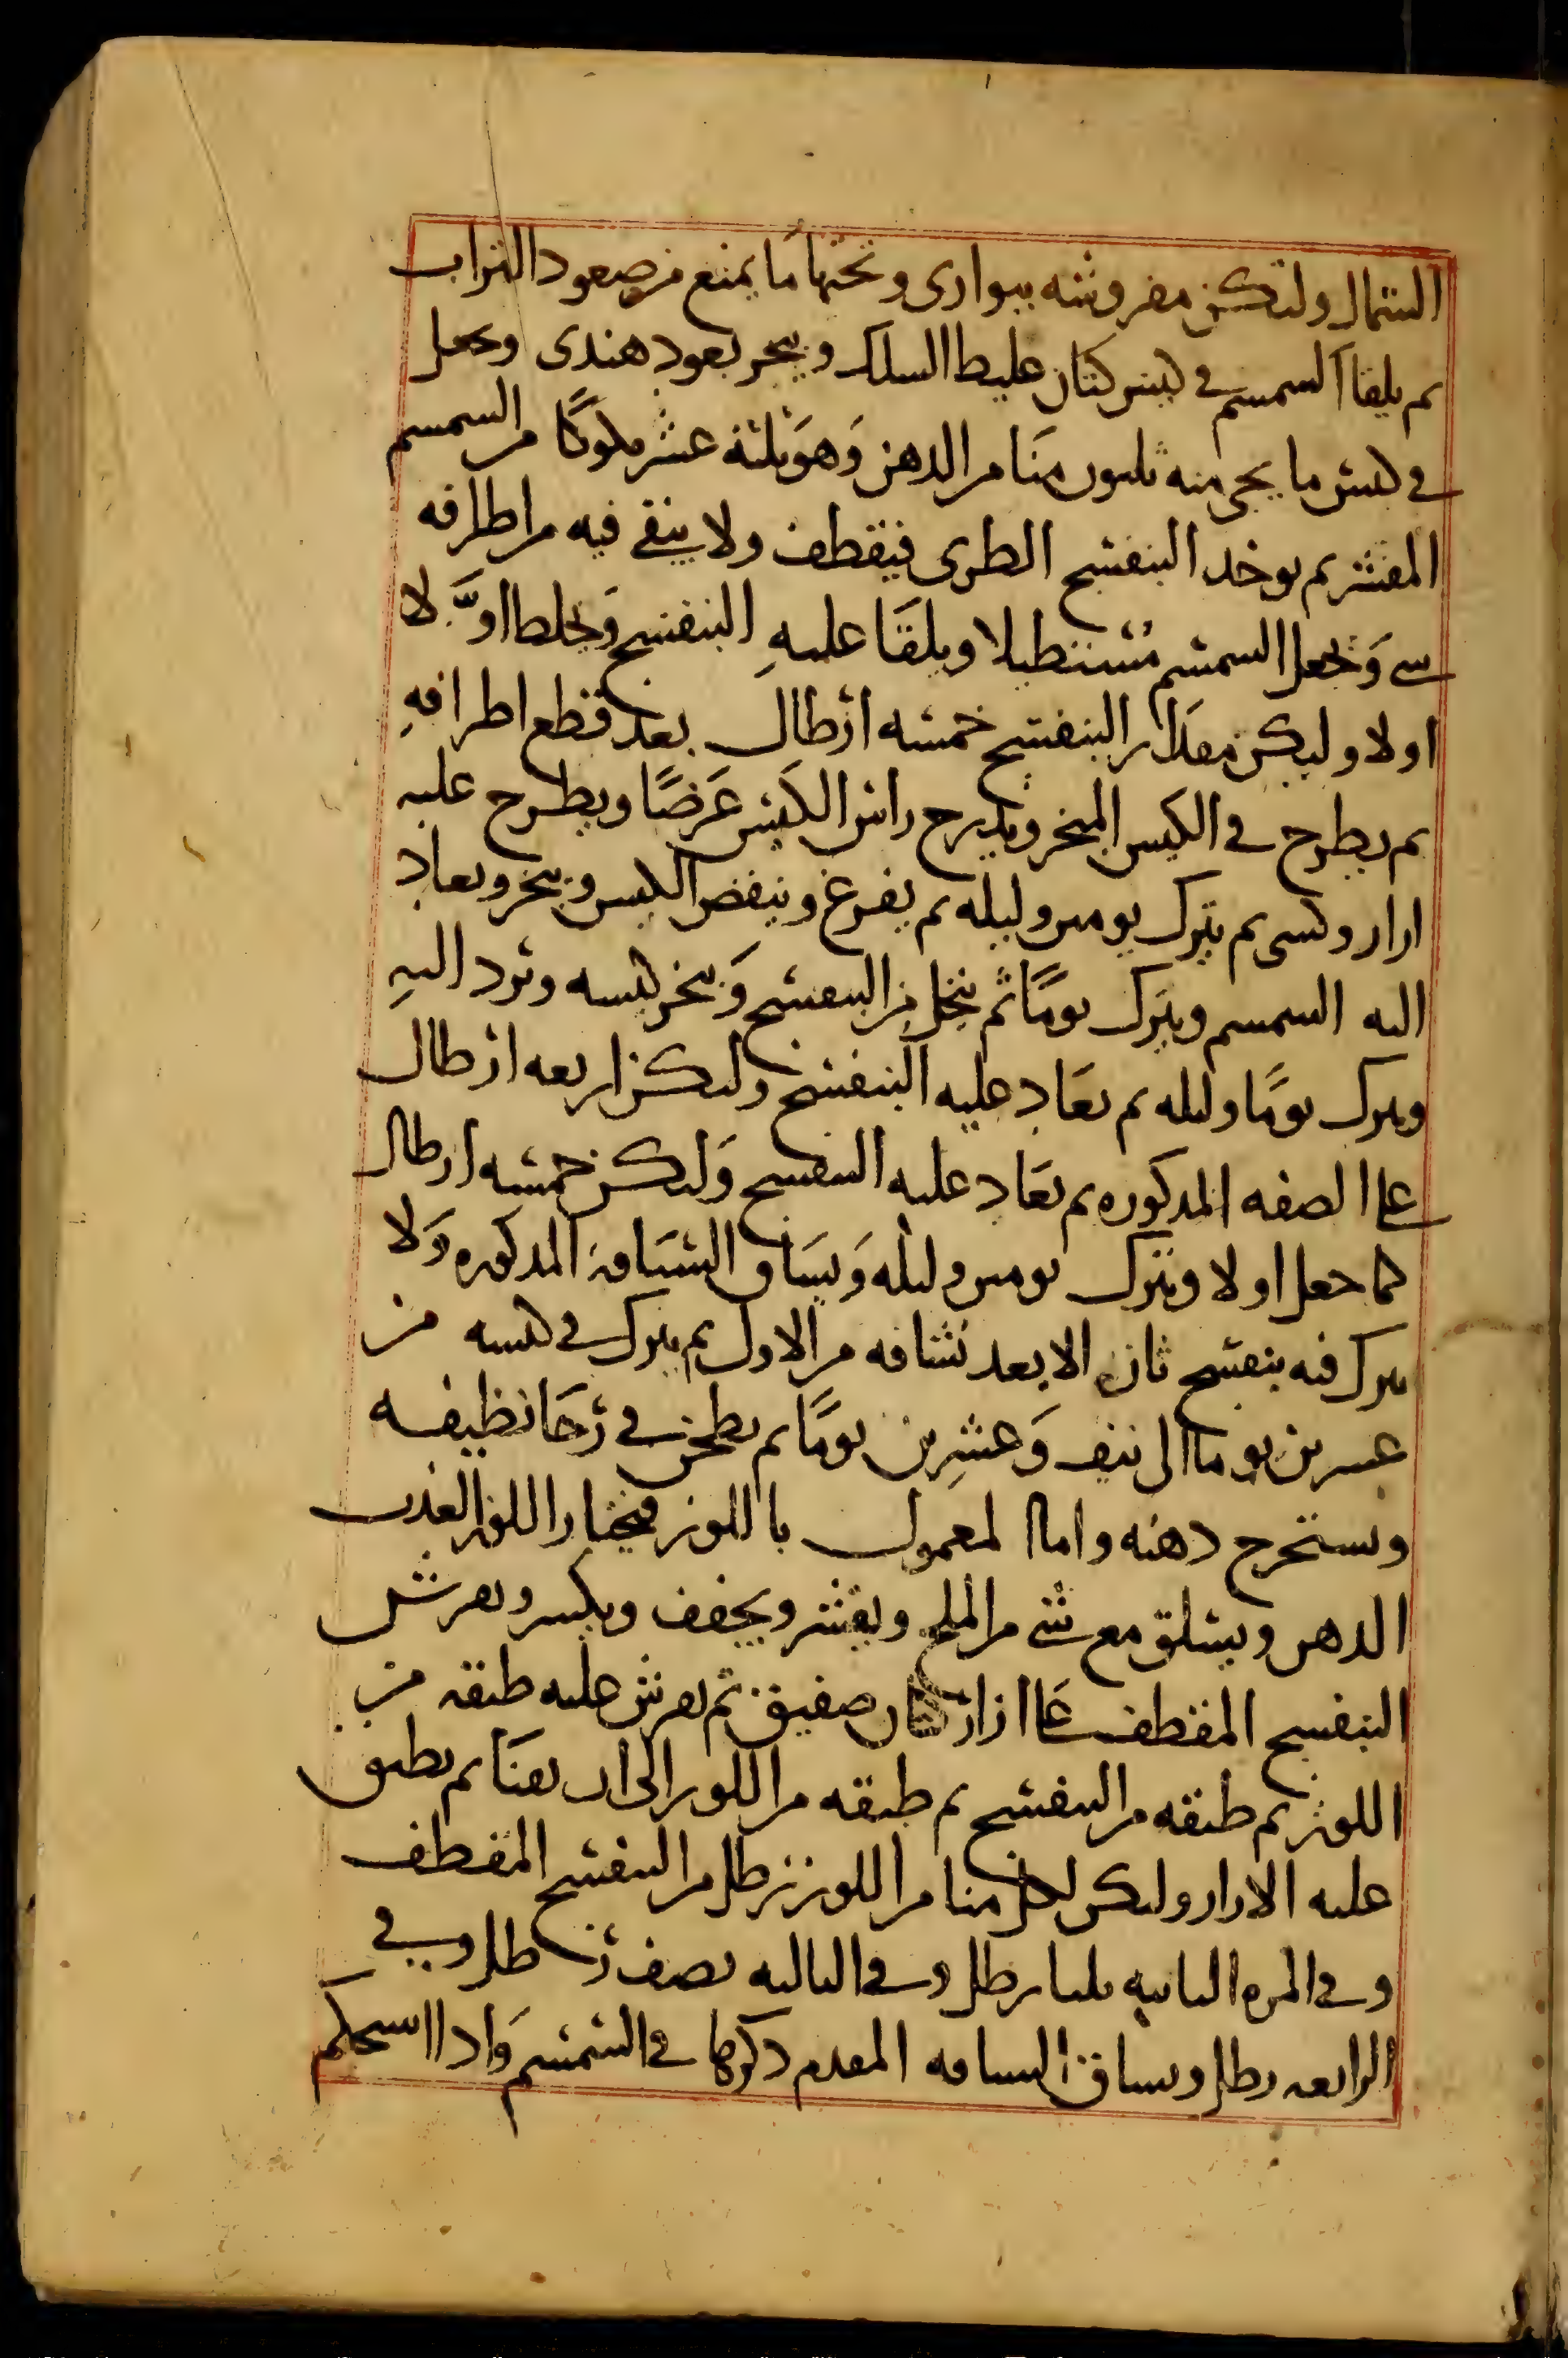 الشمال ولتكن مفروشه ببوارى وتحتها مَا يمنع من صعود التراب
ثم يلقا السمسم في كيس كتان غليظ السلك ويبخر بعود هندى وبجعل
في كيس ما يجى منه ثلثون منَا من الدهن وَهوَ ثلثة عشر مكوكًا من السمسم
المقشر ثم يوخد البنفسج الطرى فيقطف ولا يبقى فيه من اطرافه
شى وَيجعل السمسم مُستطيلا ويلقَا عليهِ البنفسج وَيخلط اوَّلا
اولا وليكن مقدار البنفسج خمسه ارطال بعد قطع اطرافهِ
ثم يطرح في الكيس المبخر ويدرج راس الكيس عَرضًا ويطرح عليه
ازار وكسى ثم يترك يومين وليله ثم يفرغ وينفض الكيس ويبخر ويعاد
اليه السمسم ويترك يومًا ثم ينخل من البنفسج وَيبخر كيسه وترد اليهِ
ويترك يومًا وليله ثم يعَاد عليه البنفسج وليكن اربعه ارطال
على الصفه المدكوره ثم يعَاد عليه البنفسج وَليكن خمسه ارطال
كما جعل اولا ويترك يومين وليله وَيسَاق السيَاقة المدكوره وَلا
يترك فيه بنفسج ثان الا بعد نشافه من الاول ثم يترك في كيسه من
عسرين يوما الى نيف وَعشرِين يومًا ثم يطحن في رَحَا نظيفه
ويستخرج دهنه واما المعمول باللوز فيختار اللوز العذب
الدهن ويسلق مع شى من الملح ويقشر ويجفف ويكسر ويفرش
البنفسج المقطف عَلى ازار كتان صفيق ثم يفرش عليه طبقة من
اللوز ثم طبقه من البنفسج ثم طبقه من اللوز الى ان يفنَا ثم يطبق
عليه الازار وليكن لكل منا من اللوز رطل من البنفسج المقطف
وفي المره الثانيه ثلثا رطل وفي الثالثه نصف رطل وفي
الرابعه رطل ويساق السياقه المقدم دكرها في السمسم وَادا استحكم